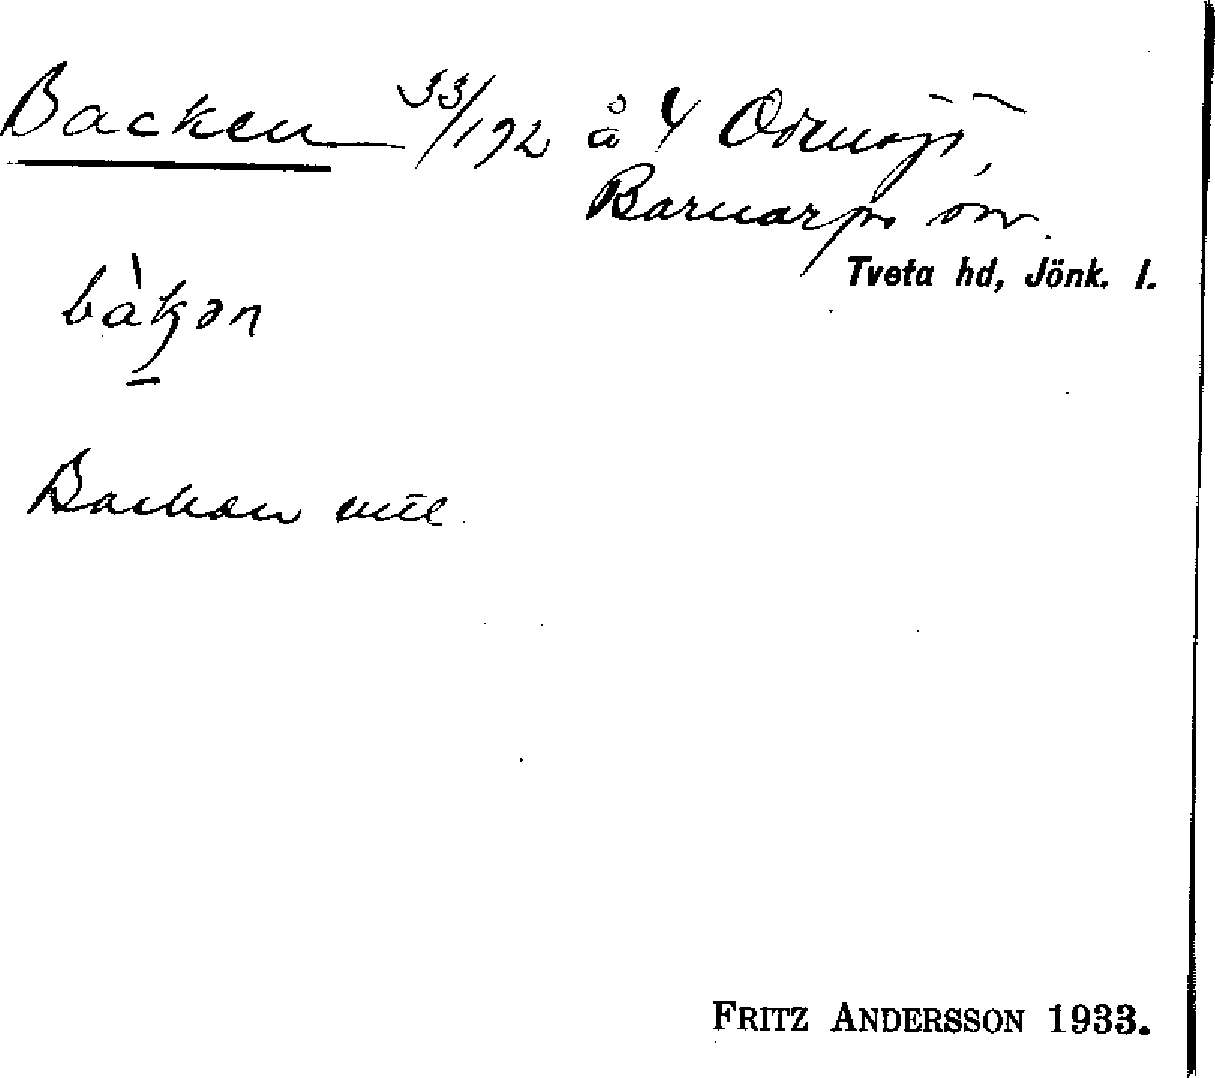 Backen 33/192 å 4
Barnarps sn.
Tveta hd, Jönk. l.
Backen
FRITZ ANDERSSON 1933.